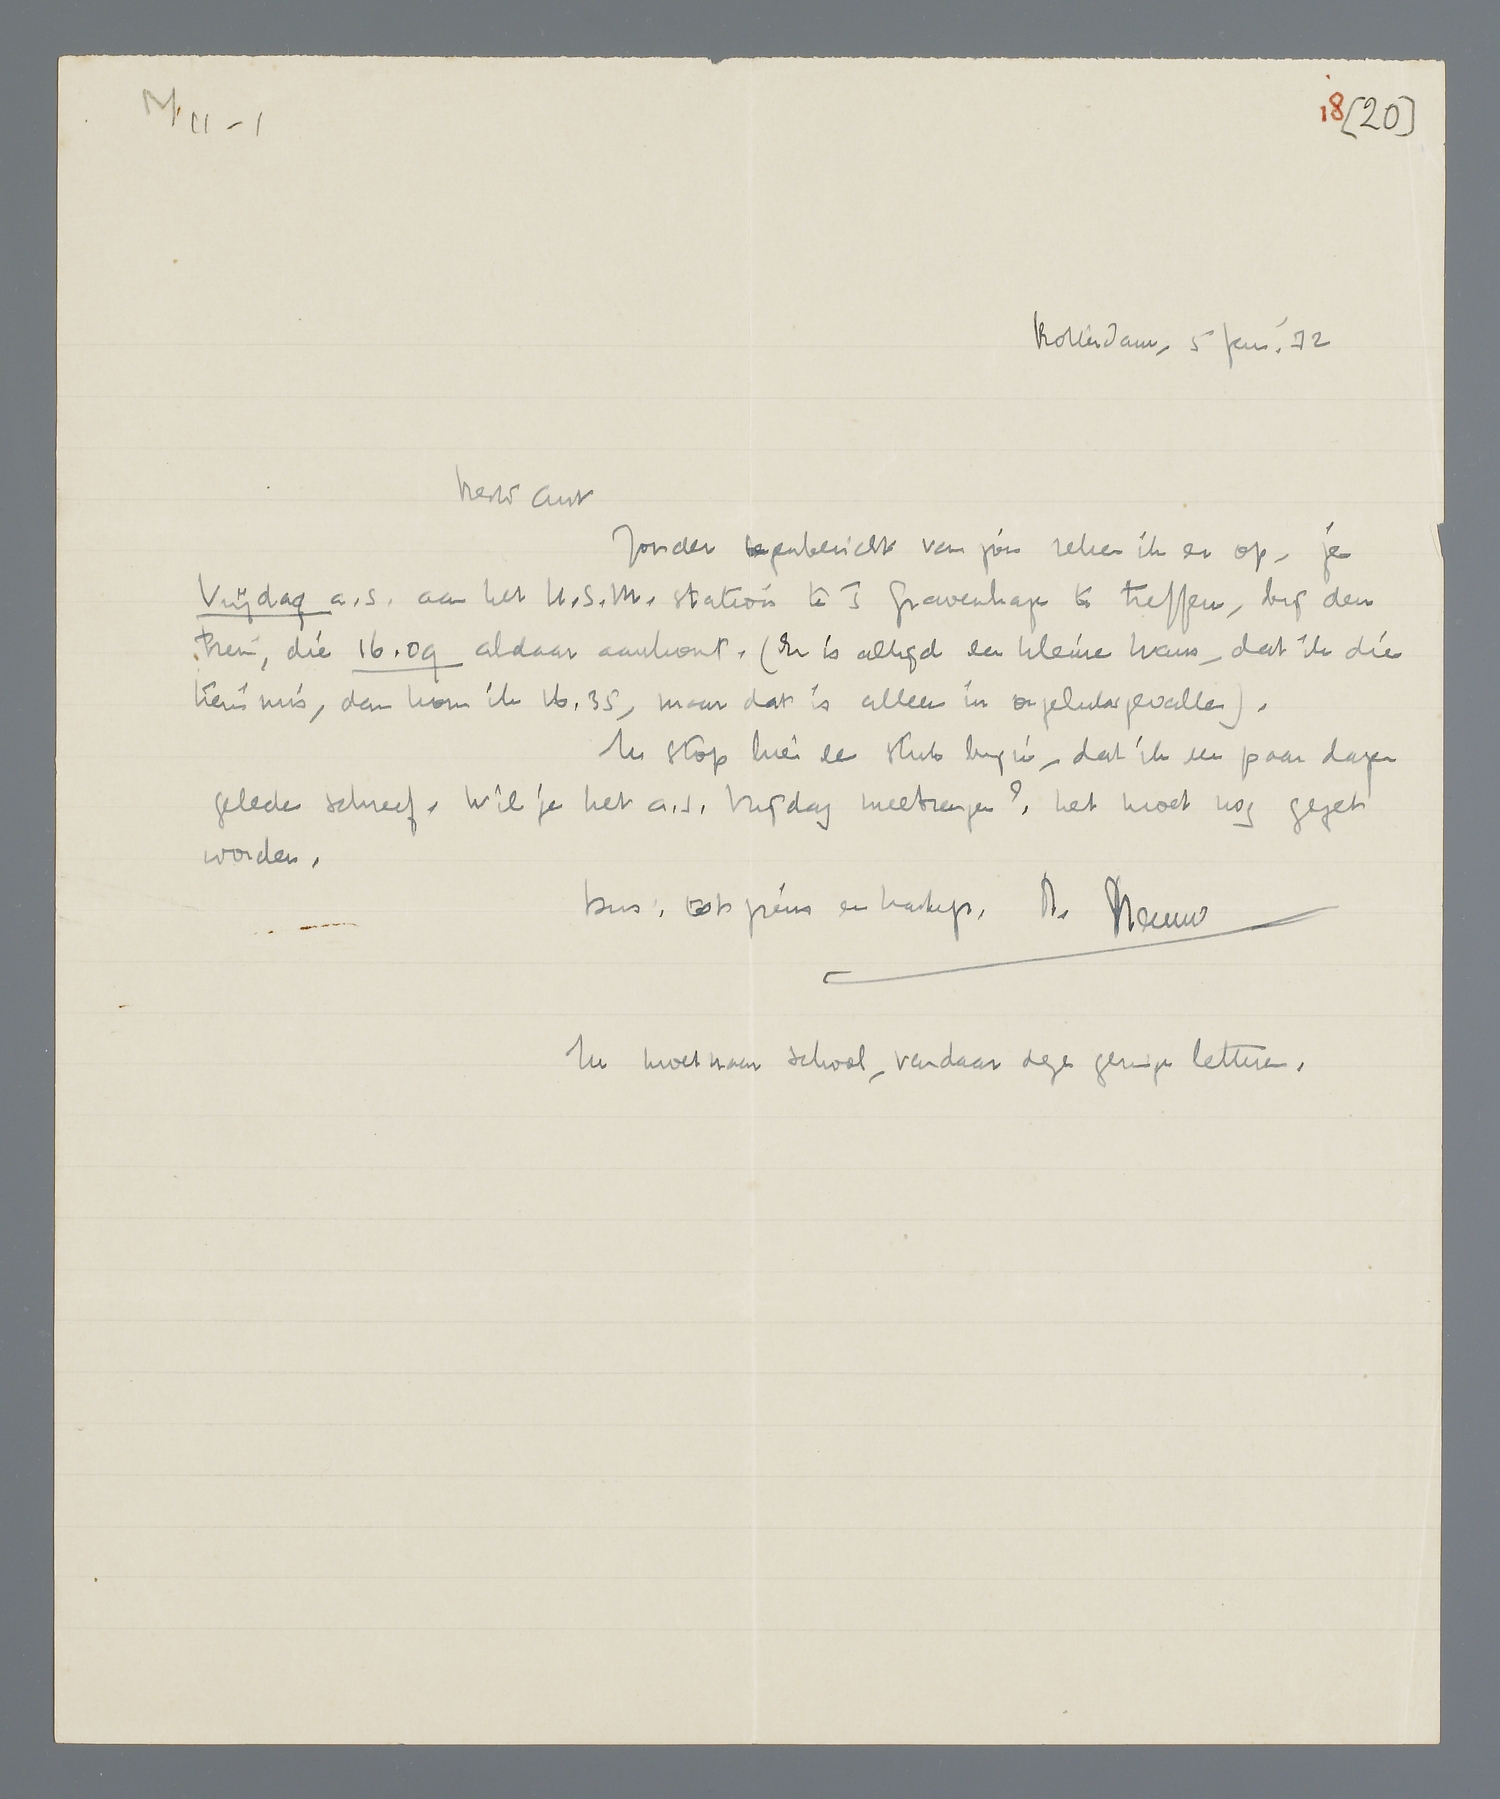 M 11 - 1
18 [20]
Rotterdam, 5 Jan. '32
Beste Ant
Zonder tegenbericht van jou reken ik er op, je
Vrijdag a.s. aan het H.S.M. station te 's Gravenhage te treffen, bij den
trein, die 16.09 aldaar aankomt. (Er is altijd een kleine kans, dat ik die
trein mis, dan kom ik 16.35, maar dat is alleen in ongeluksgevallen).
Ik stop hier een stuk bij in, dat ik een paar dagen
geleden schreef. Wil je het a.s. Vrijdag meebrengen?, het moet nog gezet
worden.
en hartegr.
Ik moet naar school, vandaar deze geringe letteren.